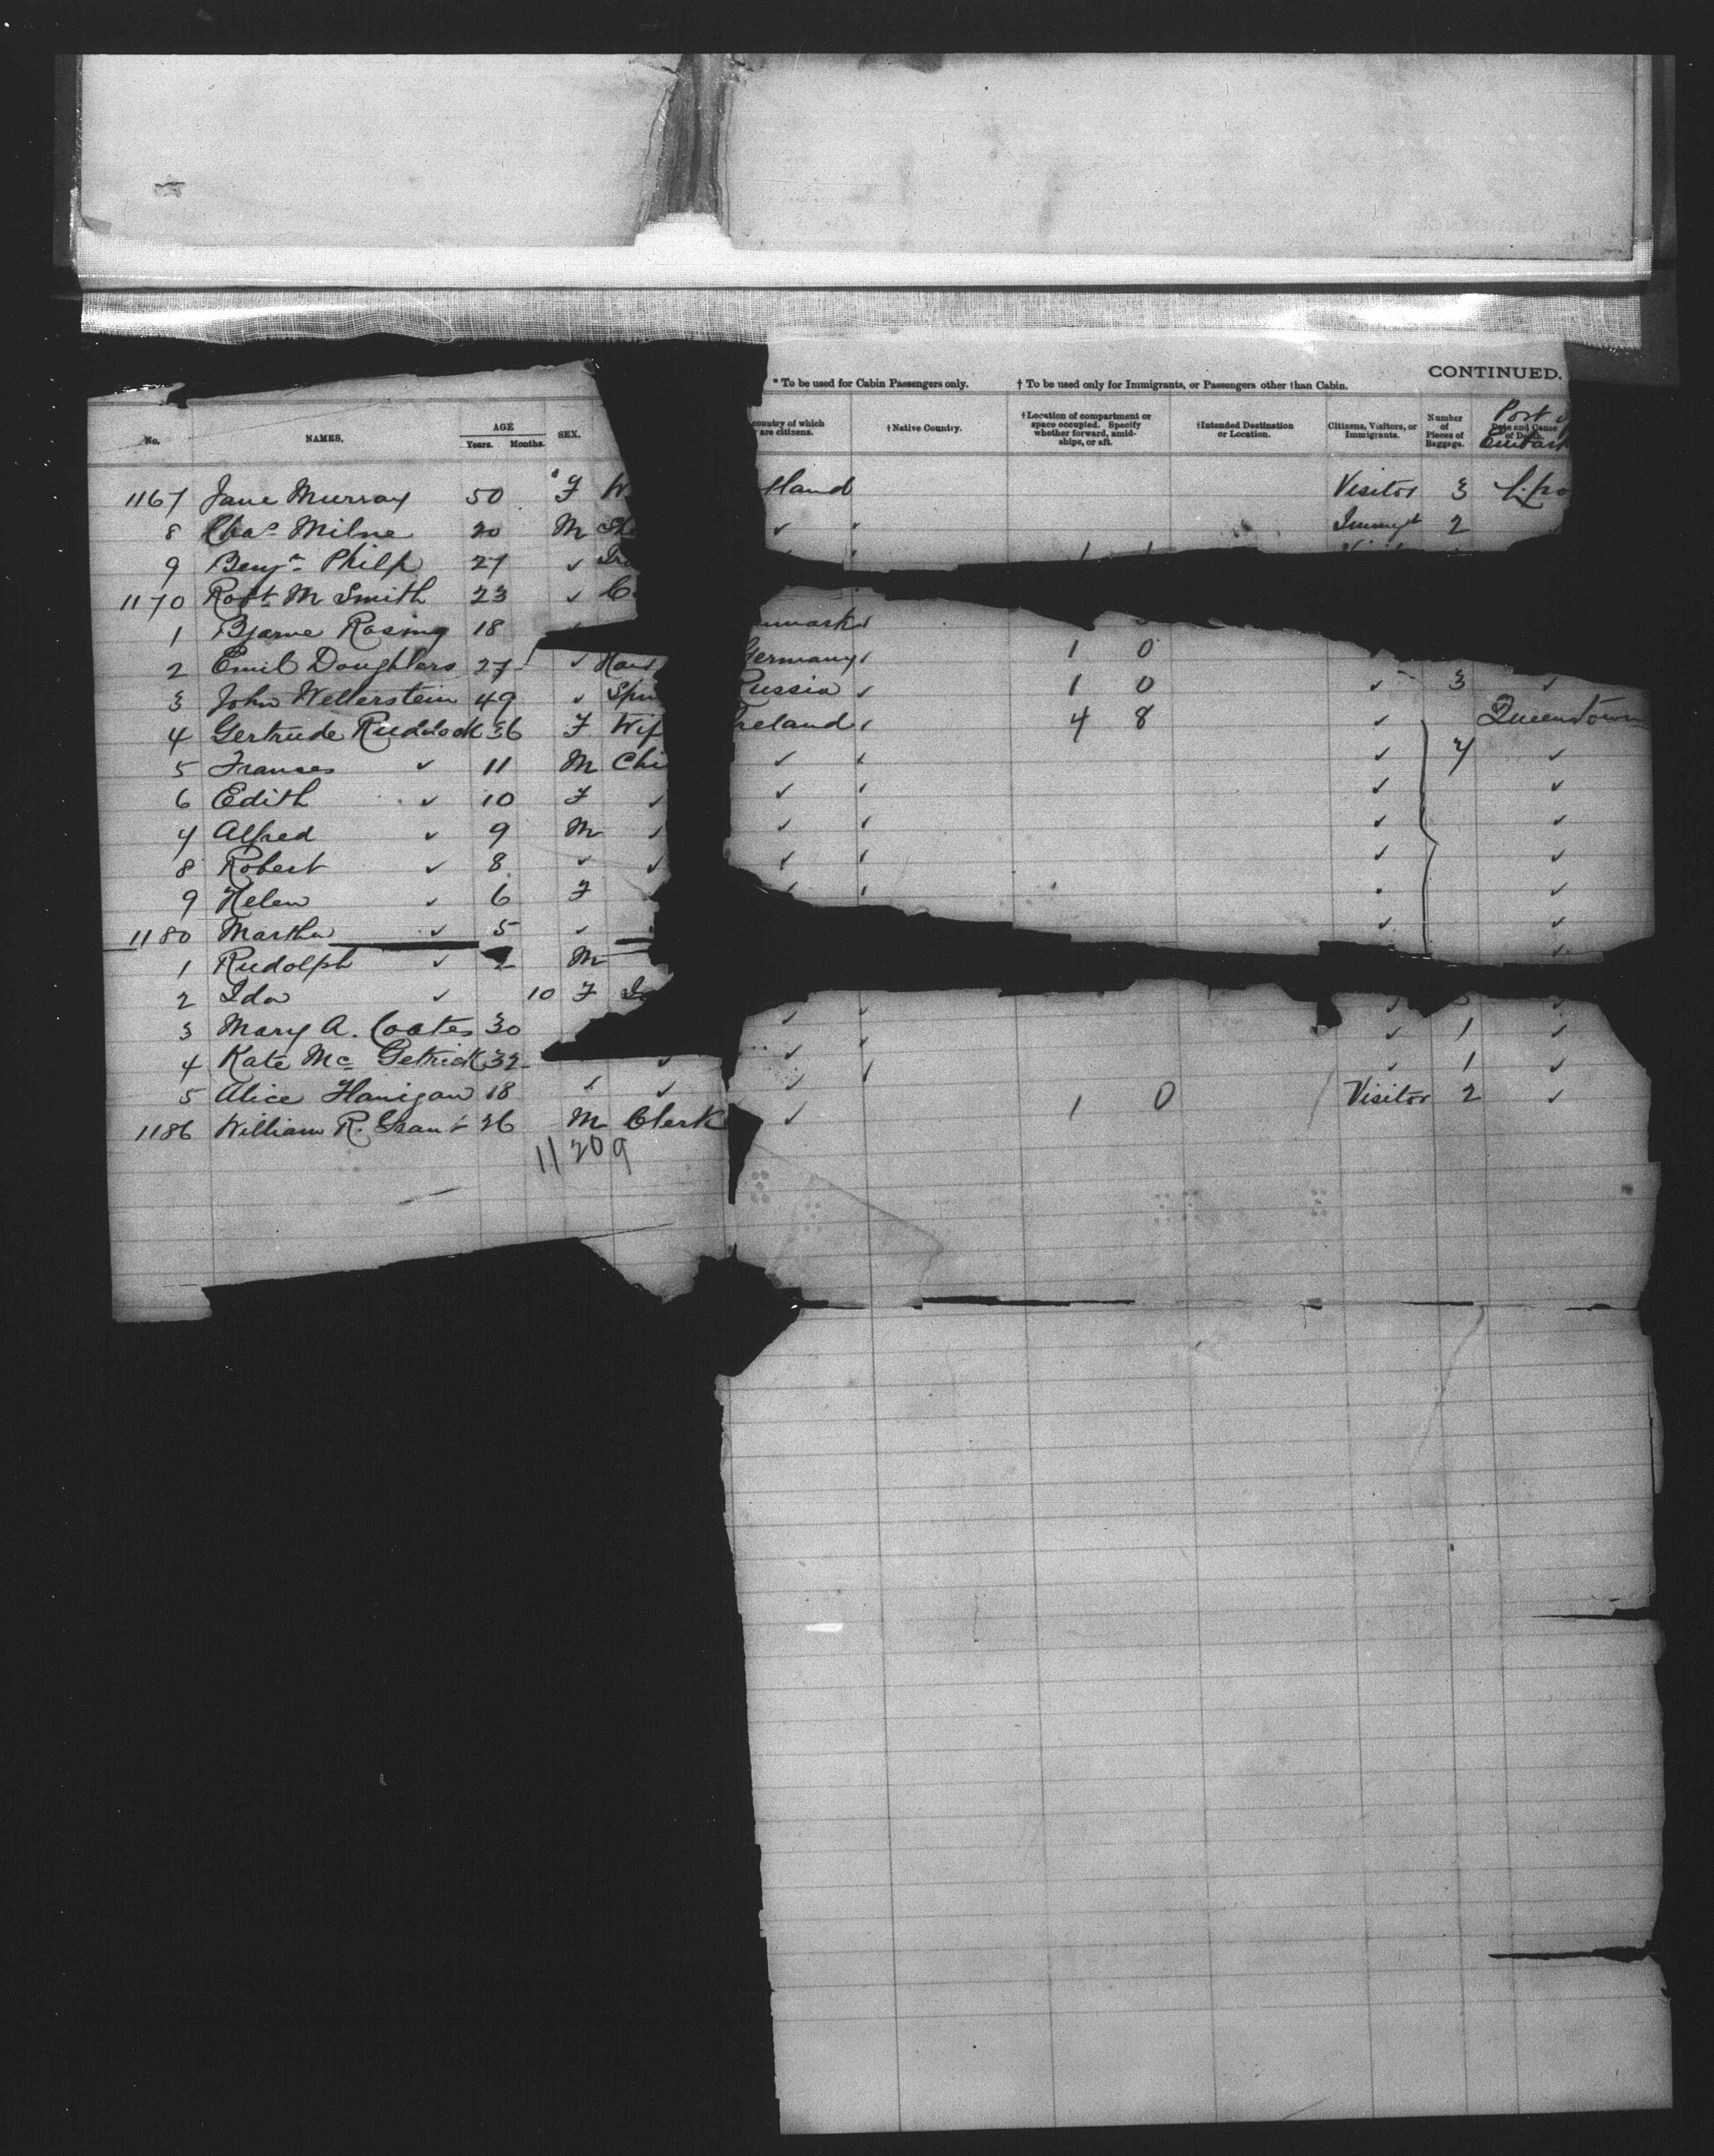 CONTINUED.
* To be used for Cabin Passengers only. † To be used only for Immigrants, or Passengers other than Cabin.
No. NAMES. AGE Years. Months. SEX. country of which are citizens. †Native Country. †Location of compartment or space occupied. Specify whether forward, amidships, or aft. †Intended Destination or Location. Citizens, Visitors, or Immigrants. Number of Pieces of Baggage. Date and Cause of Death. Port
1167 Jane Murray 50 F land Visitor 3
8 Chas Milne 20 M ✓ Immgt 2
9 Benjn Philp 27 ✓
1170 Robt M Smith 23 ✓
1 Bjarne Rosing 18 nmark
2 Emil Doughlers 27 ✓ Germany 1 0
3 John Wellerstein 49 ✓ Spin Russia ✓ 1 0 ✓ 3 ✓
4 Gertrude Ruddock 36 F Wif Ireland 4 8 ✓ Queenstown
5 Frances ✓ 11 M Chi ✓ ✓ 7 ✓
6 Edith ✓ 10 F ✓ ✓ ✓ ✓
7 Alfred ✓ 9 M ✓ ✓ ✓ ✓
8 Robert ✓ 8 ✓ ✓ ✓ ✓ ✓
9 Helen ✓ 6 F ✓
1180 Martha ✓ 5 ✓ ✓ ✓
1 Rudolph ✓ M
2 Ida ✓ 10 F
3 Mary A. Coates 30 ✓ ✓ 1 ✓
4 Kate Mc Getrick 32 ✓ ✓ ✓ 1 ✓
5 Alice Flanigan 18 ✓ ✓ ✓ Visitor 2 ✓
1186 William R. Grant 26 M Clerk ✓ 1 0
11209